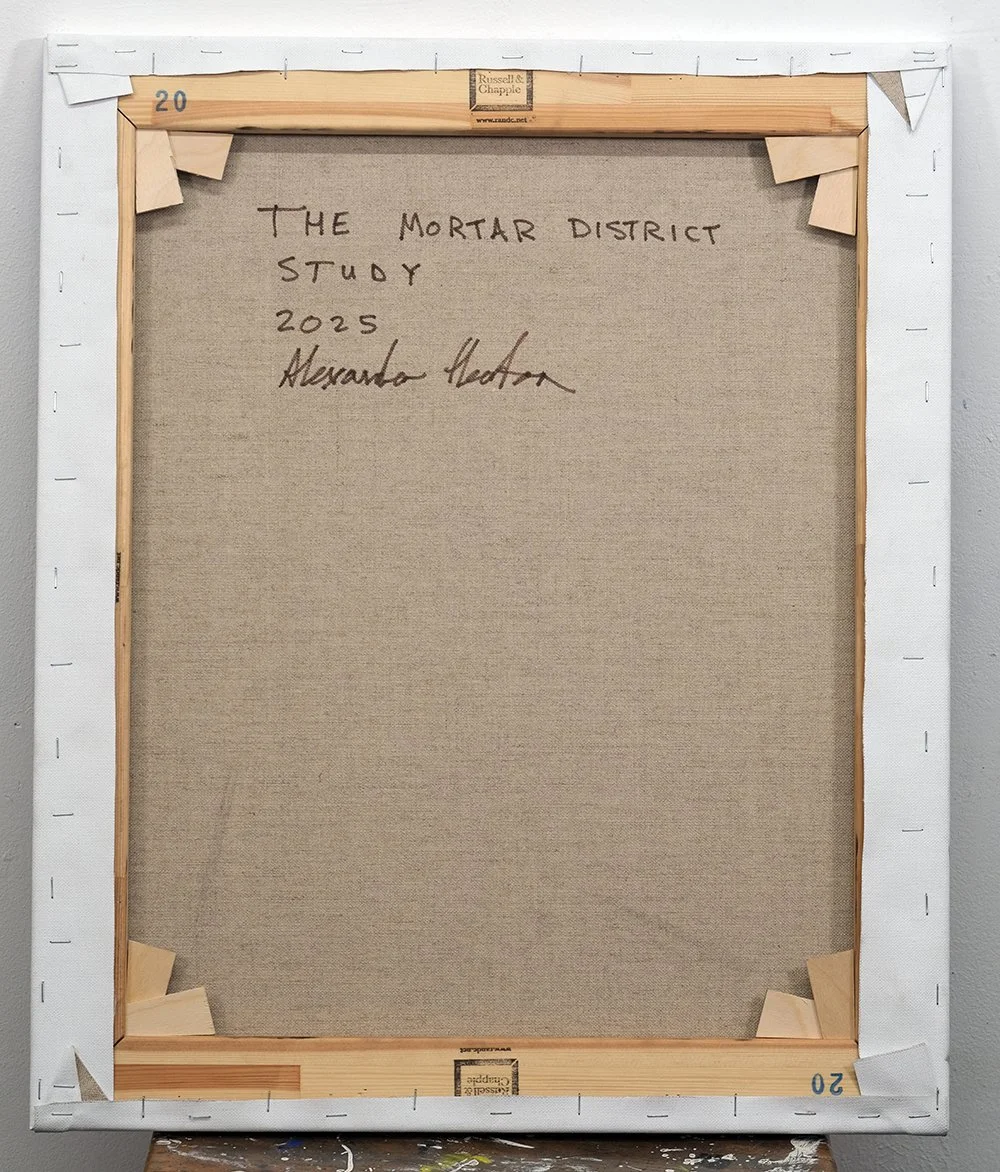 20
Russell &
Chapple
www.randc.net
THE MORTAR DISTRICT
STUDY
2025
www.randc.net
www.randc.net
Russell &
Chapple
20